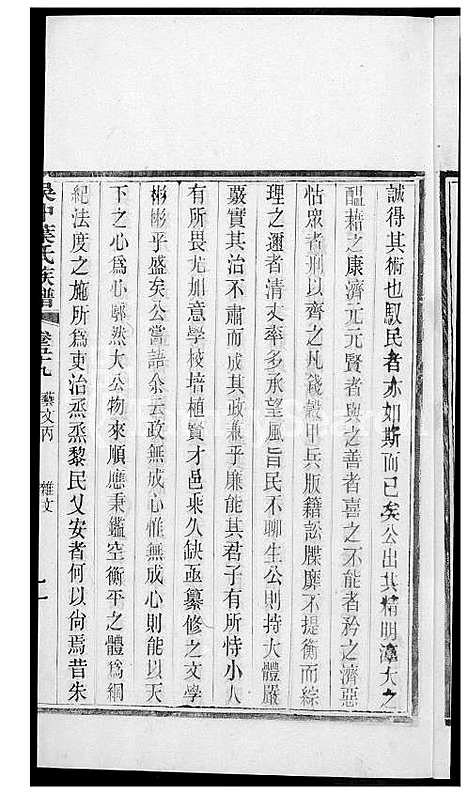 誠得其術也馭民者亦如斯而已矣公出其精明渾大之
醞藉之康濟元元賢者與之善者喜之不能者矜之濟惡
怙眾者刑以齊之凡錢穀甲兵版籍訟牒靡不提衡而綜
理之邇者清丈率多承望風旨民不聊生公則持大體嚴
覈實其治不肅而成其政兼乎廉能其君子有所恃小人
有所畏尤加意學校培植賢才邑乘久缺亟纂修之文學
彬彬乎盛矣公嘗語余云政無成心惟無成心則能以天
下之心為心郭然大公物來順應秉鑑空衡平之體為綱
紀法度之施所為吏治烝烝黎民乂安者何以尙焉昔朱
吳中葉氏族譜
卷 藝文丙 雜文